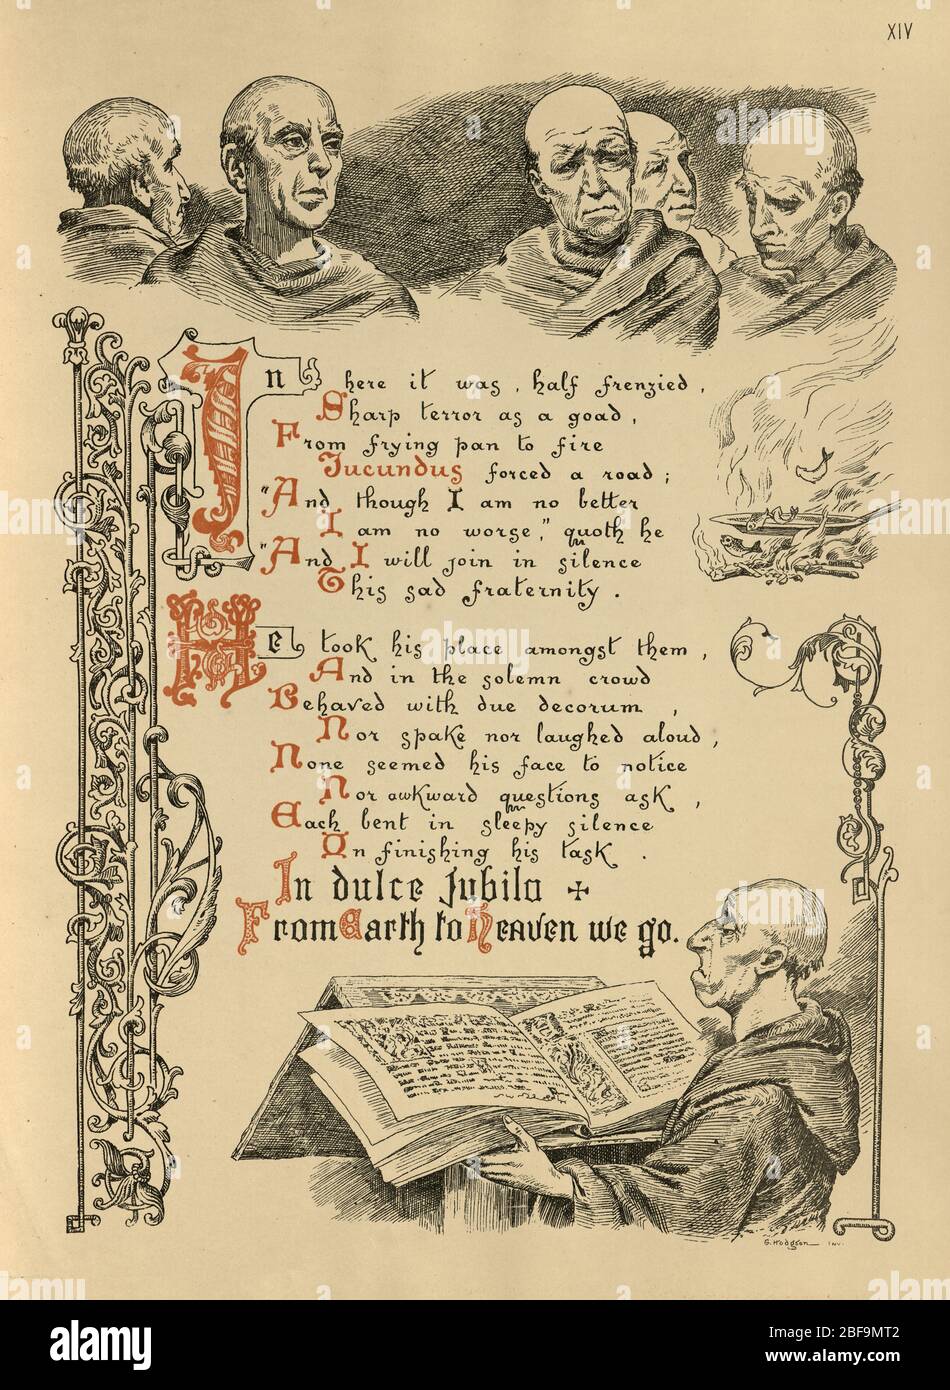 XIV
In here it was, half frenzied,
Sharp terror as a goad,
From frying pan to fire
Jucundus forced a road;
"And though I am no better
I am no worse," quoth he
"And I will join in silence
This sad fraternity.
He took his place amongst them,
And in the solemn crowd
Behaved with due decorum,
Nor spake nor laughed aloud,
None seemed his face to notice
Nor awkward questions ask,
Each bent in sleepy silence
On finishing his task.
In dulce Jubilo +
From Earth to Heaven we go.
G. Hodgson INV.
alamy
Image ID: 2BF9MT2
www.alamy.com